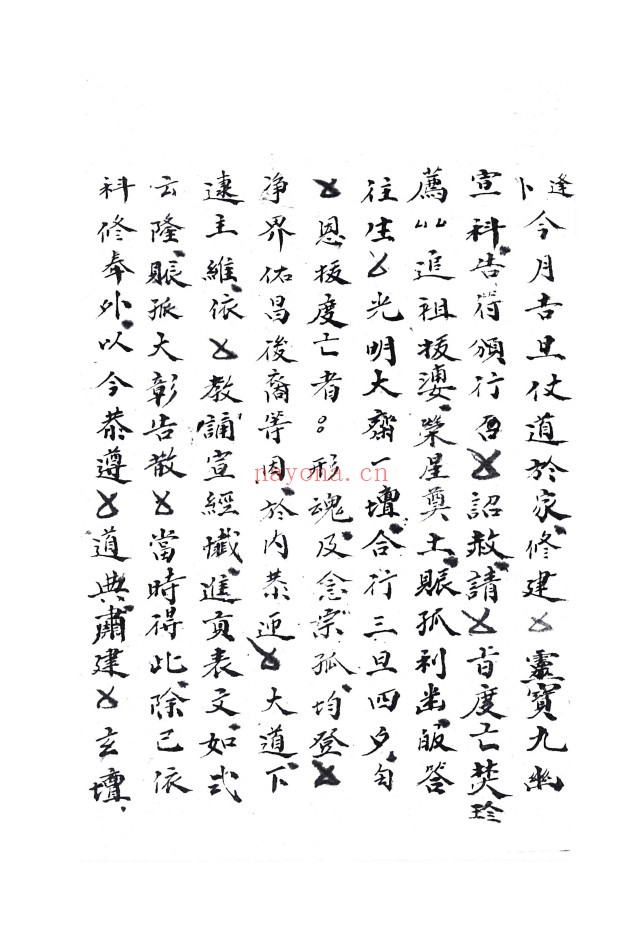 逢
卜今月吉旦仗道於家修建㐅靈寶九幽
宣科告符頒行㐅詔赦請㐅旨度亡焚珍
薦以追祖拔婆榮星奠土賑孤利幽皈答
往生㐅光明大齋一壇合行三旦四夕匄
㐅恩拔度亡者。形魂及念宗孤均登㐅
净界佑昌後裔等因於內恭迎㐅大道下
逮主維依㐅教誦宣經懺進貢表文如式
云隆賑孤大彰告散㐅當時得此除已依
科修奉外以今恭遵㐅道典肅建㐅玄壇
nayona.cn